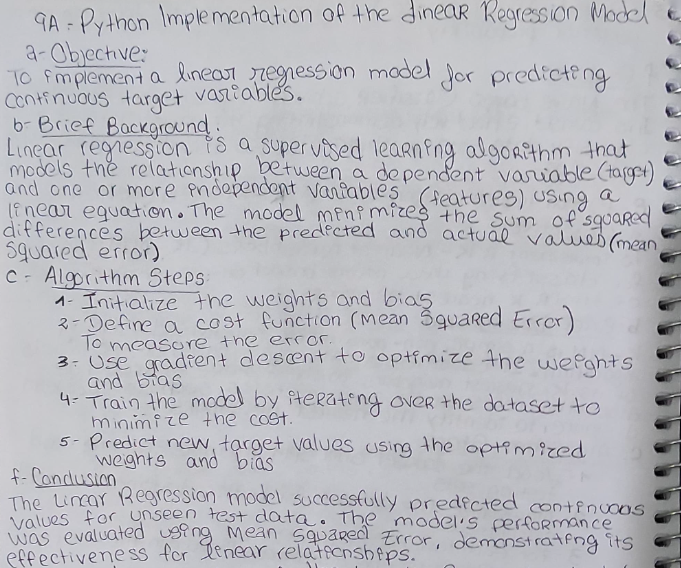 9A - Python Implementation of the Linear Regression Model
a- Objective:
To implement a linear regression model for predicting
continuous target variables.
b- Brief Background:
Linear regression is a supervised learning algorithm that
models the relationship between a dependent variable (target)
and one or more independent variables (features) using a
linear equation. The model minimizes the sum of squared
differences between the predicted and actual values (mean
squared error)
c - Algorithm Steps:
1- Initialize the weights and bias
2- Define a cost function (Mean Squared Error)
To measure the error.
3- Use gradient descent to optimize the weights
and bias
4- Train the model by iterating over the dataset to
minimize the cost.
5- Predict new target values using the optimized
weights and bias
f- Conclusion
The Linear Regression model successfully predicted continuous
values for unseen test data. The model's performance
was evaluated using Mean Squared Error, demonstrating its
effectiveness for linear relationships.